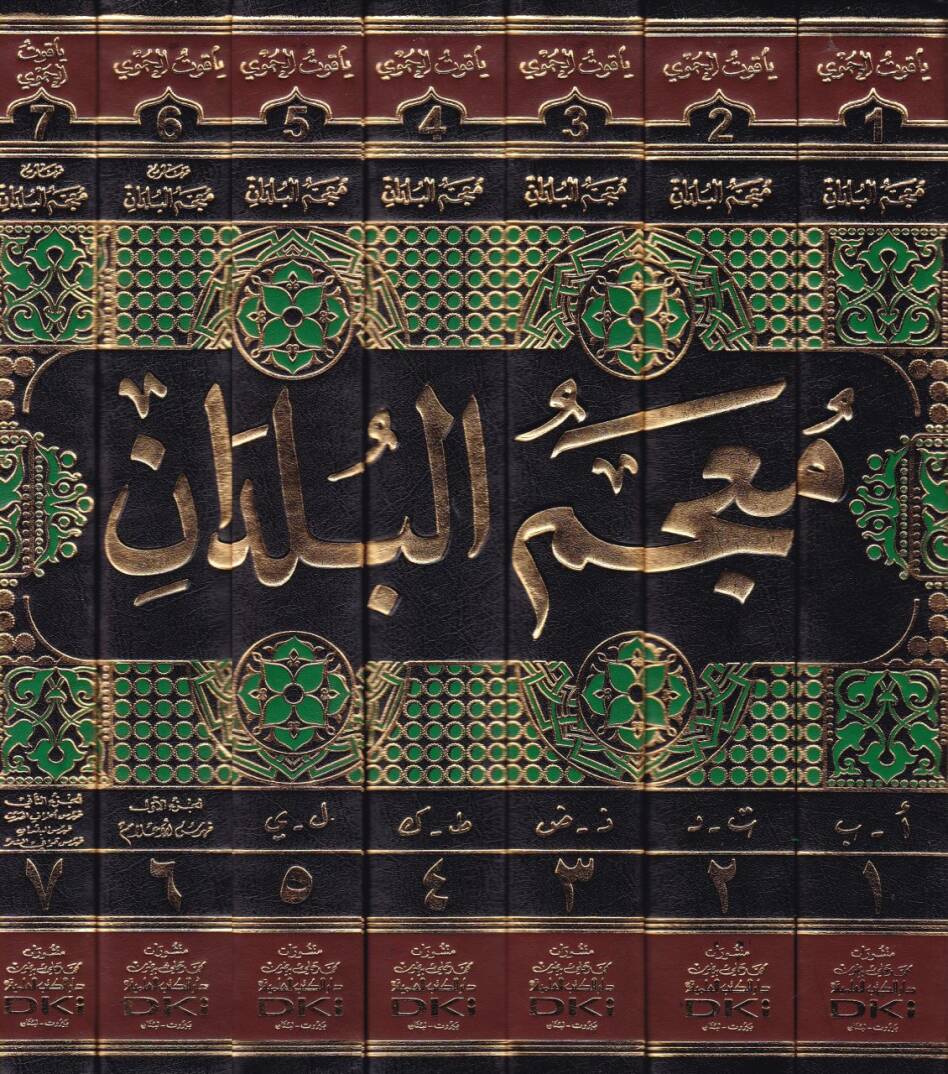 ياقوت الحموي
1
معجم البلدان
أ - ب
١
منشورات
محمد علي بيضون
دار الكتب العلمية
DKi
بيروت - لبنان
ياقوت الحموي
2
معجم البلدان
ت - د
٢
منشورات
محمد علي بيضون
دار الكتب العلمية
DKi
بيروت - لبنان
ياقوت الحموي
3
معجم البلدان
ذ - ض
٣
منشورات
محمد علي بيضون
دار الكتب العلمية
DKi
بيروت - لبنان
ياقوت الحموي
4
معجم البلدان
ط - ك
٤
منشورات
محمد علي بيضون
دار الكتب العلمية
DKi
بيروت - لبنان
ياقوت الحموي
5
معجم البلدان
ل - ي
٥
منشورات
محمد علي بيضون
دار الكتب العلمية
DKi
بيروت - لبنان
ياقوت الحموي
6
فهارس
معجم البلدان
الجزء الأول
فهرس الأعلام
٦
منشورات
محمد علي بيضون
دار الكتب العلمية
DKi
بيروت - لبنان
ياقوت
الحموي
7
فهارس
معجم البلدان
الجزء الثاني
٧
منشورات
محمد علي بيضون
دار الكتب العلمية
DKi
بيروت - لبنان
مُعجَمُ البُلدَانِ